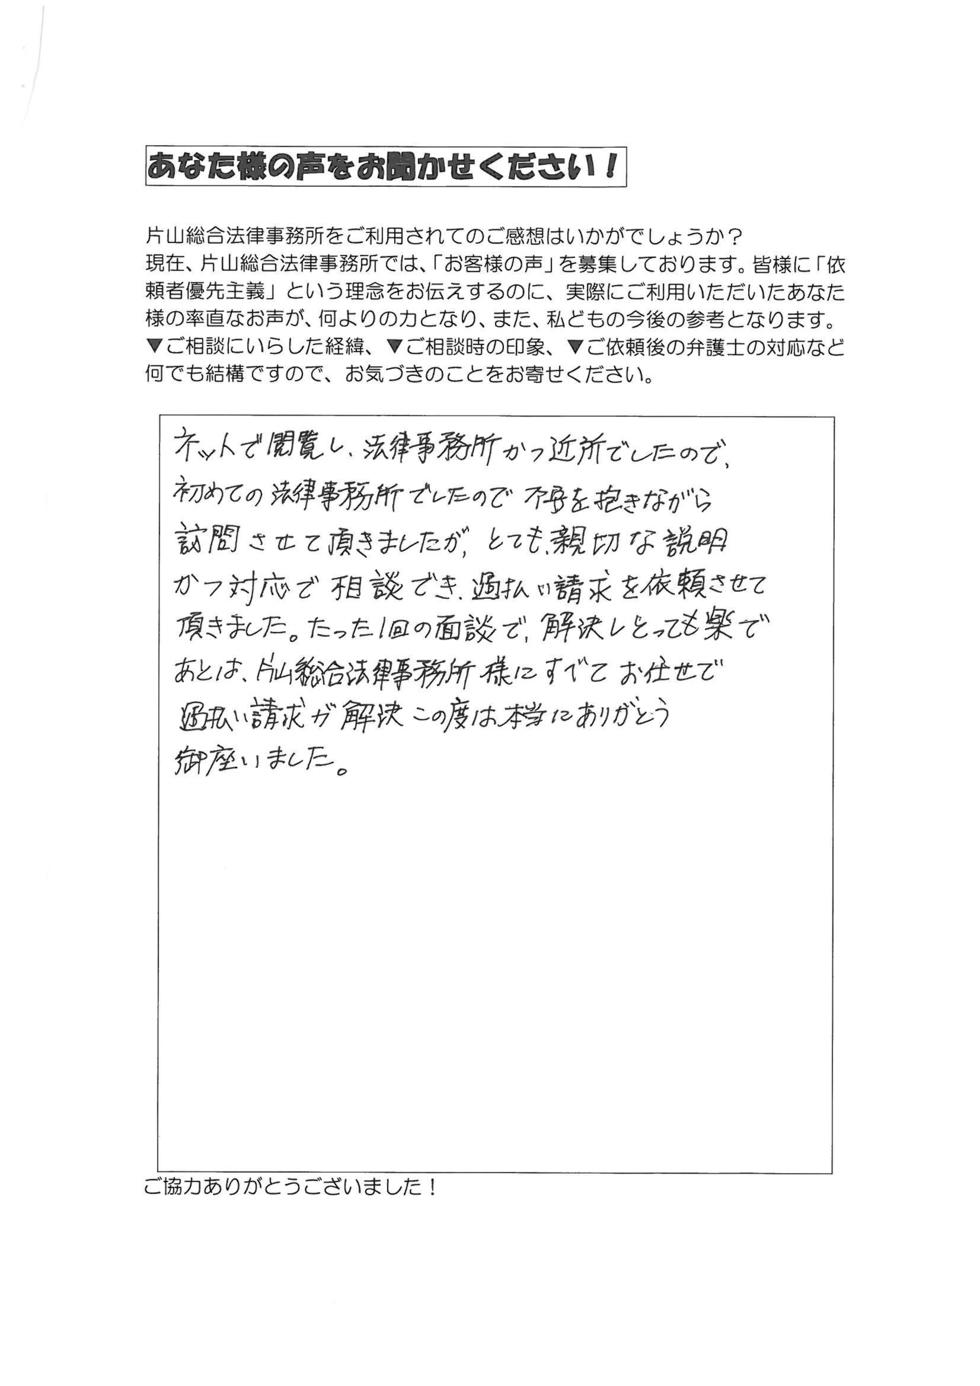 あなた様の声をお聞かせください！
片山総合法律事務所をご利用されてのご感想はいかがでしょうか？
現在、片山総合法律事務所では、「お客様の声」を募集しております。皆様に「依
頼者優先主義」という理念をお伝えするのに、実際にご利用いただいたあなた
様の率直なお声が、何よりの力となり、また、私どもの今後の参考となります。
▼ご相談にいらした経緯、▼ご相談時の印象、▼ご依頼後の弁護士の対応など
何でも結構ですので、お気づきのことをお寄せください。
ネットで閲覧し、法律事務所かつ近所でしたので、
初めての法律事務所でしたので不安を抱きながら
訪問させて頂きましたが、とても、親切な説明
かつ対応で相談でき、過払い請求を依頼させて
頂きました。たった1回の面談で、解決しとっても楽で
あとは、片山総合法律事務所様にすべてお任せで
過払い請求が解決この度は本当にありがとう
御座いました。
ご協力ありがとうございました！